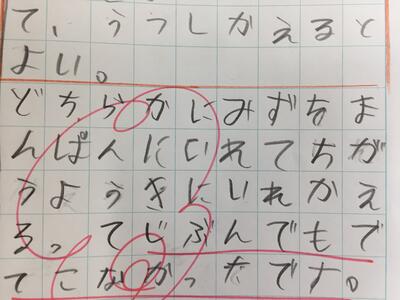 て、うつしかえると
よい。
どちらかにみずちま
んぱんにいれてちが
うようきにいれかえ
る。ってじぶんでもで
てこなかったです。